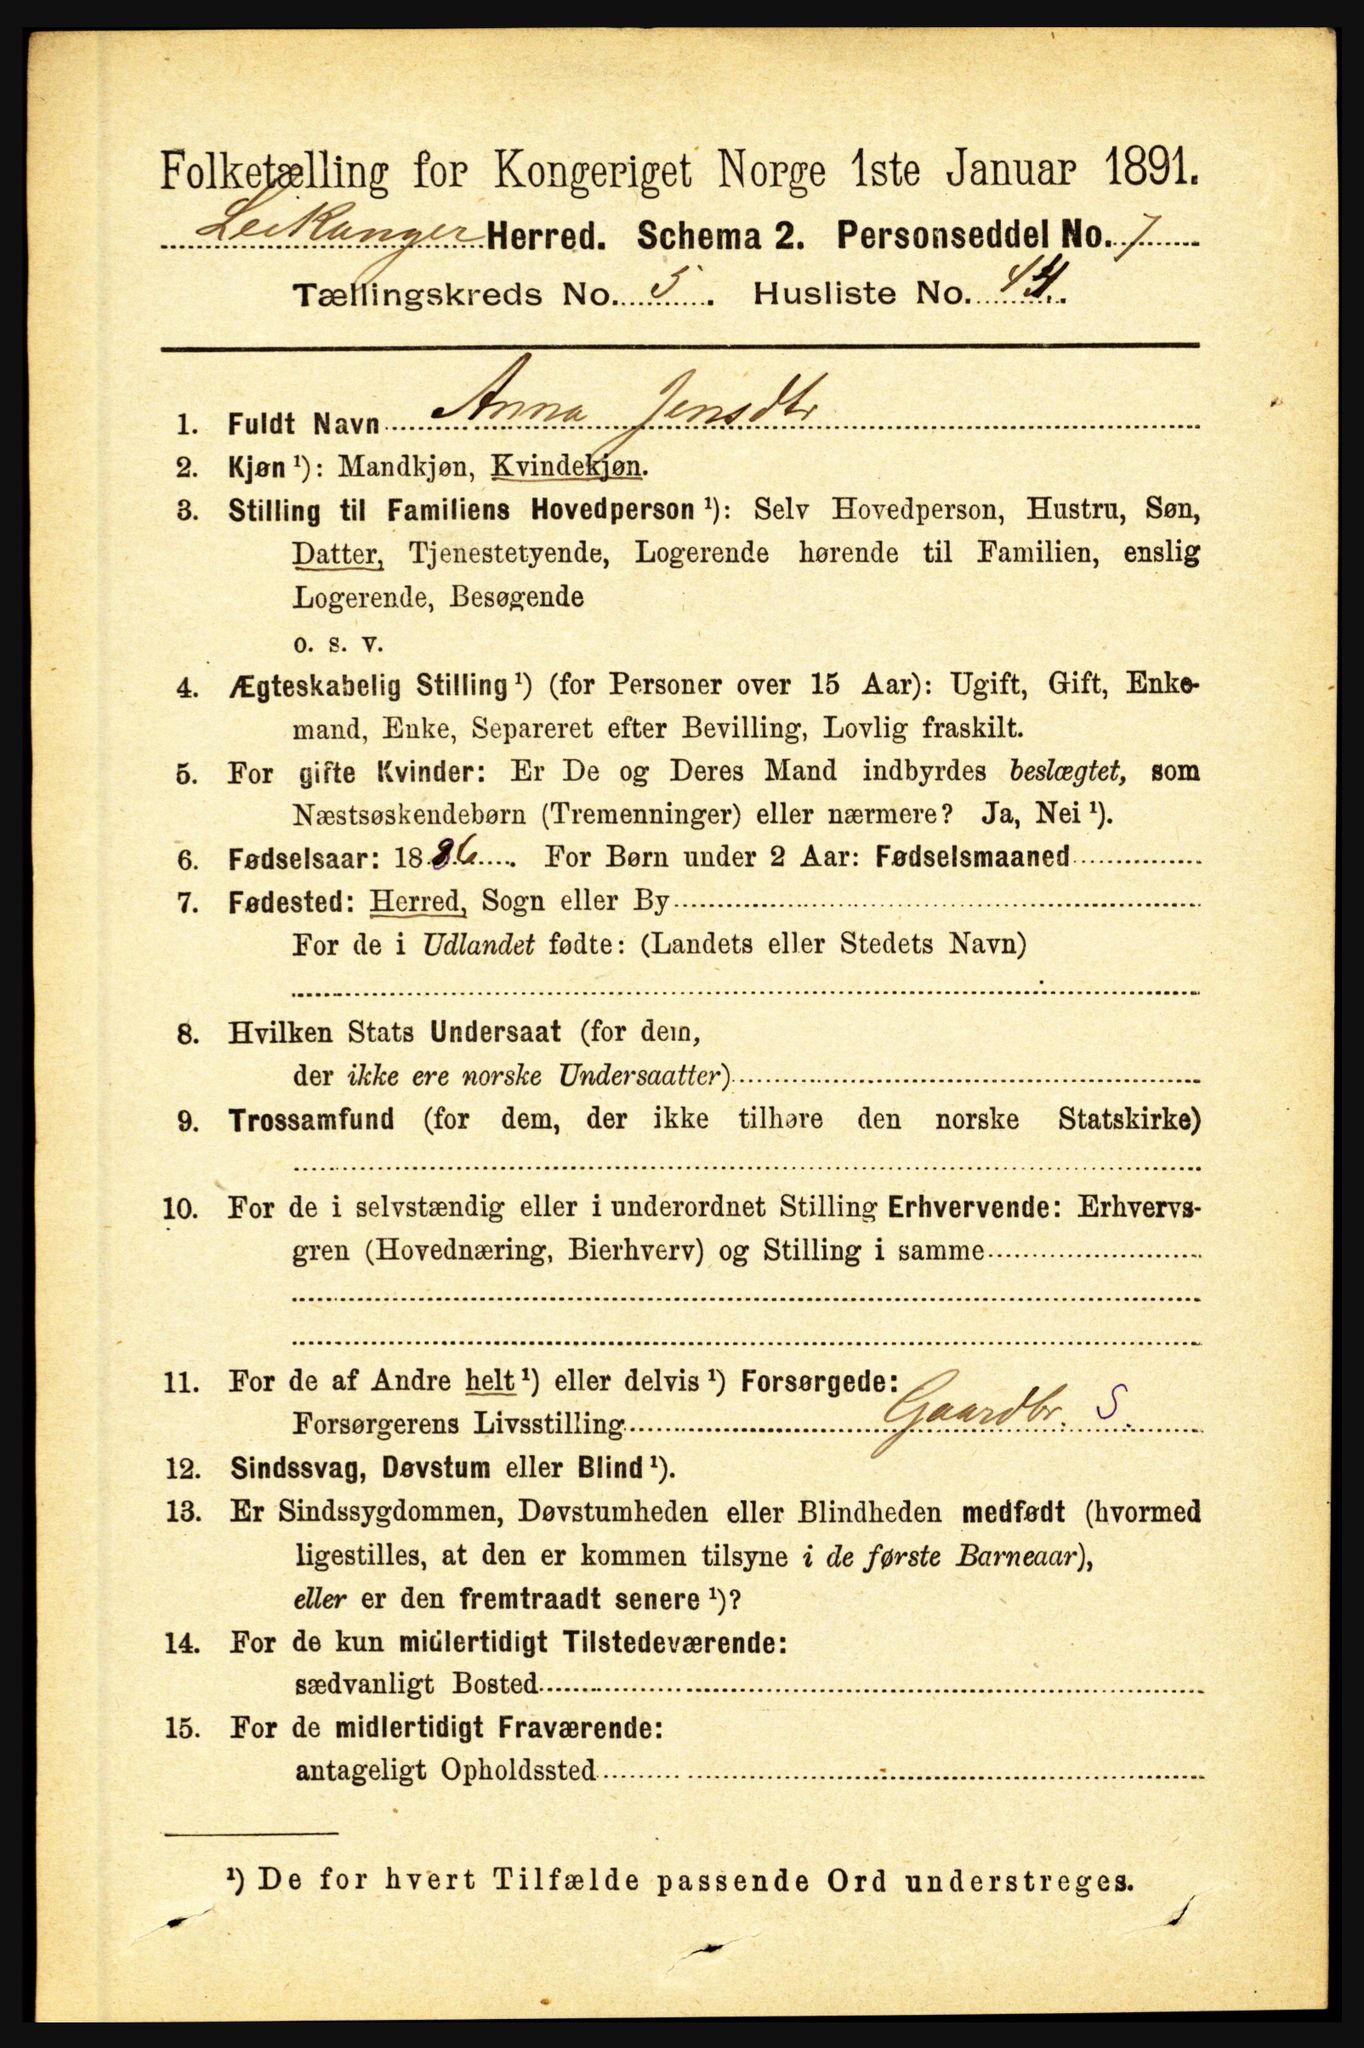 Folketælling for Kongeriget Norge 1ste Januar 1891.
Leikanger Herred. Schema 2. Personseddel No. 7
Tællingskreds No. 5. Husliste No. 44.
1. Fuldt Navn Anna Jensdtr
2. Kjøn ¹): Mandkjøn, Kvindekjøn.
3. Stilling til Familiens Hovedperson ¹): Selv Hovedperson, Hustru, Søn,
Datter, Tjenestetyende, Logerende hørende til Familien, enslig
Logerende, Besøgende
o. s. v.
4. Ægteskabelig Stilling ¹) (for Personer over 15 Aar): Ugift, Gift, Enke-
mand, Enke, Separeret efter Bevilling, Lovlig fraskilt.
5. For gifte Kvinder: Er De og Deres Mand indbyrdes beslægtet, som
Næstsøskendebørn (Tremenninger) eller nærmere? Ja, Nei ¹).
6. Fødselsaar: 1886. For Børn under 2 Aar: Fødselsmaaned
7. Fødested: Herred, Sogn eller By
For de i Udlandet fødte: (Landets eller Stedets Navn)
8. Hvilken Stats Undersaat (for dem,
der ikke ere norske Undersaatter)
9. Trossamfund (for dem, der ikke tilhøre den norske Statskirke)
10. For de i selvstændig eller i underordnet Stilling Erhvervende: Erhvervs-
gren (Hovednæring, Bierhverv) og Stilling i samme
11. For de af Andre helt ¹) eller delvis ¹) Forsørgede:
Forsørgerens Livsstilling Gaardbr. S.
12. Sindssvag, Døvstum eller Blind ¹).
13. Er Sindssygdommen, Døvstumheden eller Blindheden medfødt (hvormed
ligestilles, at den er kommen tilsyne i de første Barneaar),
eller er den fremtraadt senere ¹)?
14. For de kun midlertidigt Tilstedeværende:
sædvanligt Bosted
15. For de midlertidigt Fraværende:
antageligt Opholdssted
¹) De for hvert Tilfælde passende Ord understreges.